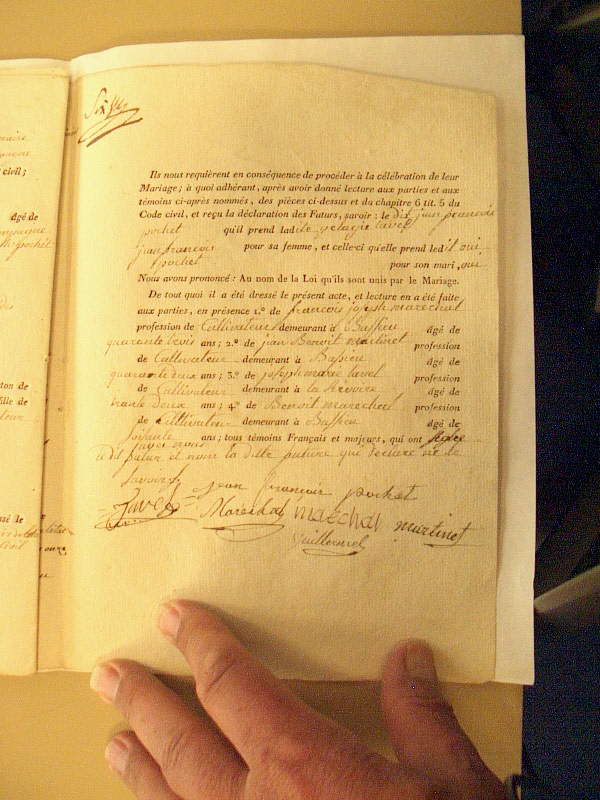 Ils nous requièrent en conséquence de procéder à la célébration de leur
Mariage ; à quoi adhérant, après avoir donné lecture aux parties et aux
témoins ci-après nommés, des pièces ci-dessus et du chapitre 6 tit. 5 du
Code civil, et reçu la déclaration des Futurs, savoir : le dit jean francois
pochet qu'il prend ladite pelagie tavel
jean francois pour sa femme, et celle-ci qu'elle prend ledit oui
pochet pour son mari, oui
Nous avons prononcé : Au nom de la Loi qu'ils sont unis par le Mariage.
De tout quoi il a été dressé le présent acte, et lecture en a été faite
aux parties, en présence 1.º de francois joseph marechal
profession de Cultivateur demeurant à Bassieu âgé de
quarante trois ans ; 2.º de jean Benoit martinet profession
de Cultivateur demeurant à Bassieu âgé de
quarante deux ans ; 3.º de joseph marie tavel profession
de Cultivateur demeurant à la âgé de
trente deux ans ; 4.º de Benoit marechal profession
de Cultivateur demeurant à Bassieu âgé de
soisante ans ; tous témoins Français et majeurs, qui ont signé
avec nous
le dit futur et non la ditte future que declare ne le
savoir
jean francois pochet
Tavel Maréchal maréchal martinet
Vuillermet
civil ;
âgé de
pochet
ton de
fille de